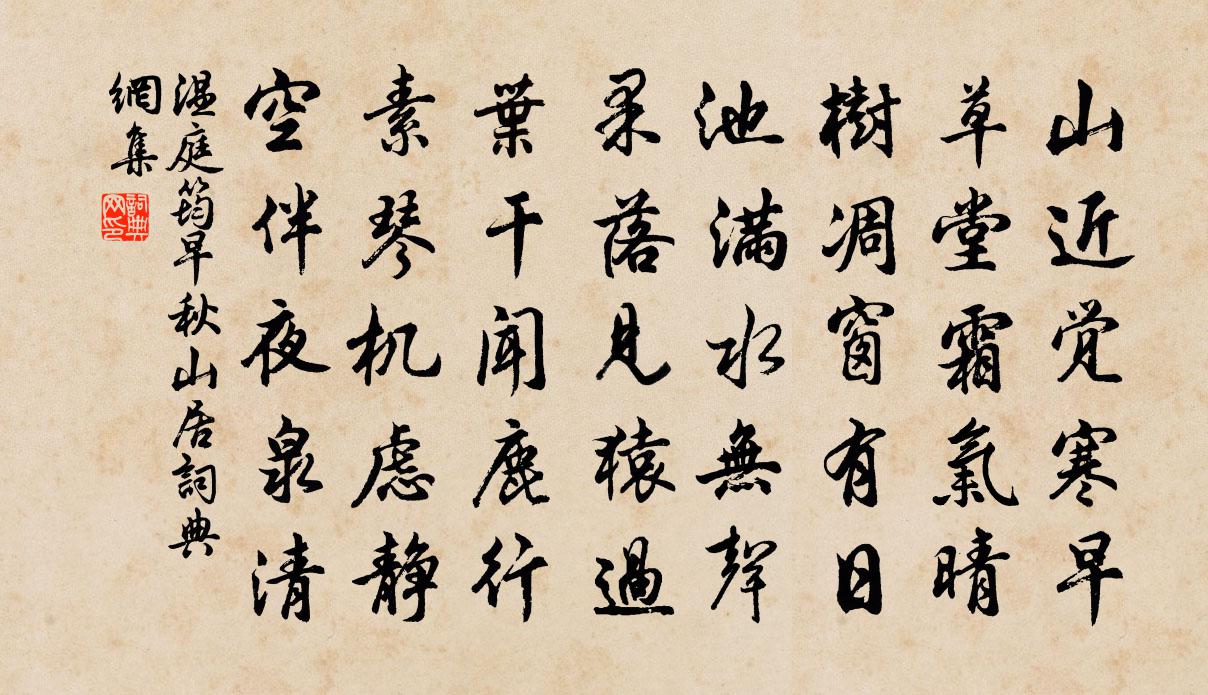 山近觉寒早
草堂霜氣晴
樹凋窗有日
池滿水無聲
果落見猿過
葉干聞鹿行
素琴机虑静
空伴夜泉清
温庭筠早秋山居詞典
網集
詞典
网印